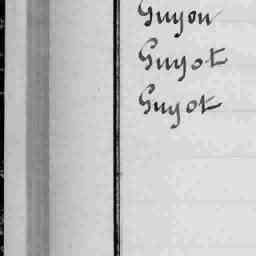 Guyon
Guyot
Guyot